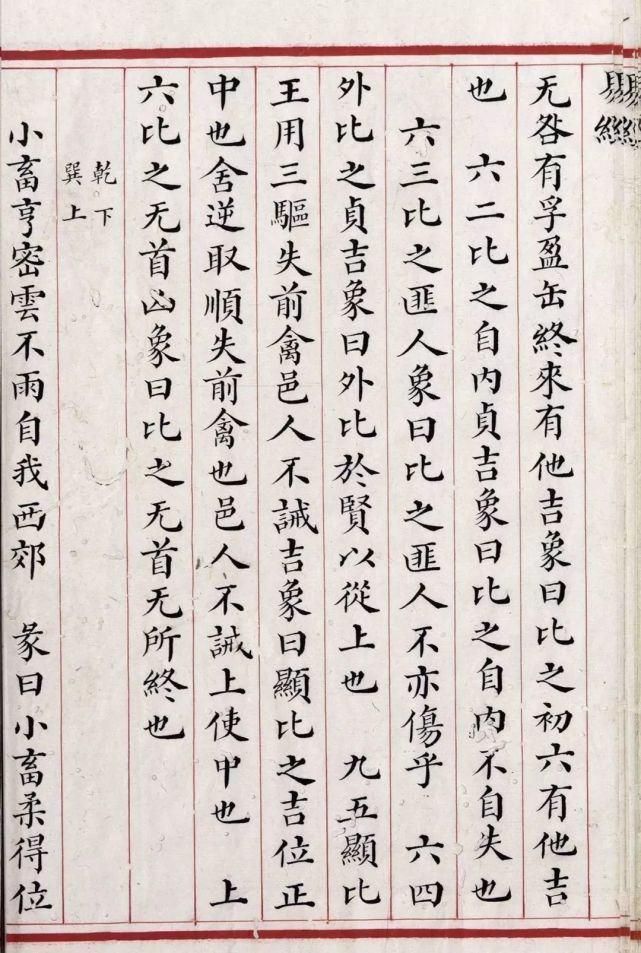 无咎有孚盈缶終來有他吉象曰比之初六有他吉
也　六二比之自内貞吉象曰比之自内不自失也
六三比之匪人象曰比之匪人不亦傷乎　六四
外比之貞吉象曰外比於賢以從上也　九五顯比
王用三驅失前禽邑人不誡吉象曰顯比之吉位正
中也舍逆取順失前禽也邑人不誡上使中也　上
六比之无首凶象曰比之无首无所終也
乾下
巽上
小畜亨密雲不雨自我西郊　彖曰小畜柔得位